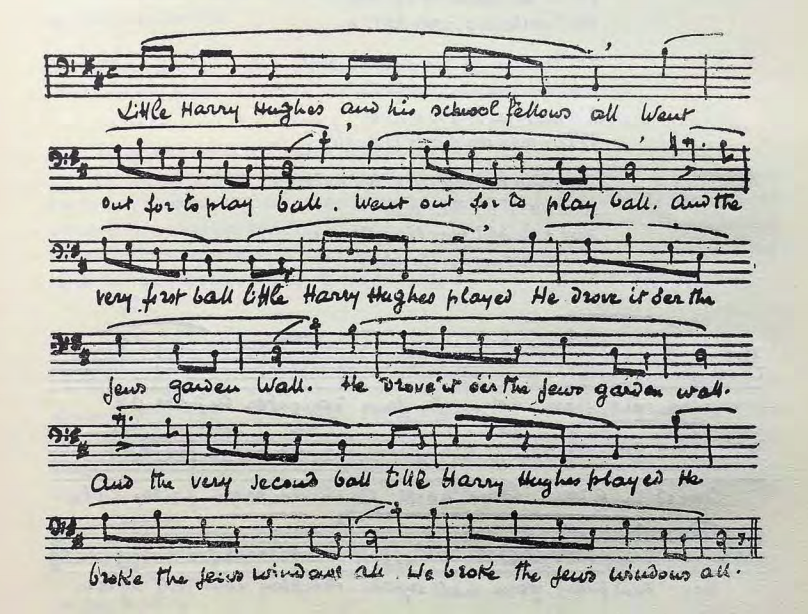 Little Harry Hughes and his school fellows all Went
out for to play ball. Went out for to play ball. And the
very first ball little Harry Hughes played He drove it o'er the
Jews garden wall. He drove it o'er the Jews garden wall.
And the very second ball little Harry Hughes played He
broke the jews windows all. He broke the jews windows all.